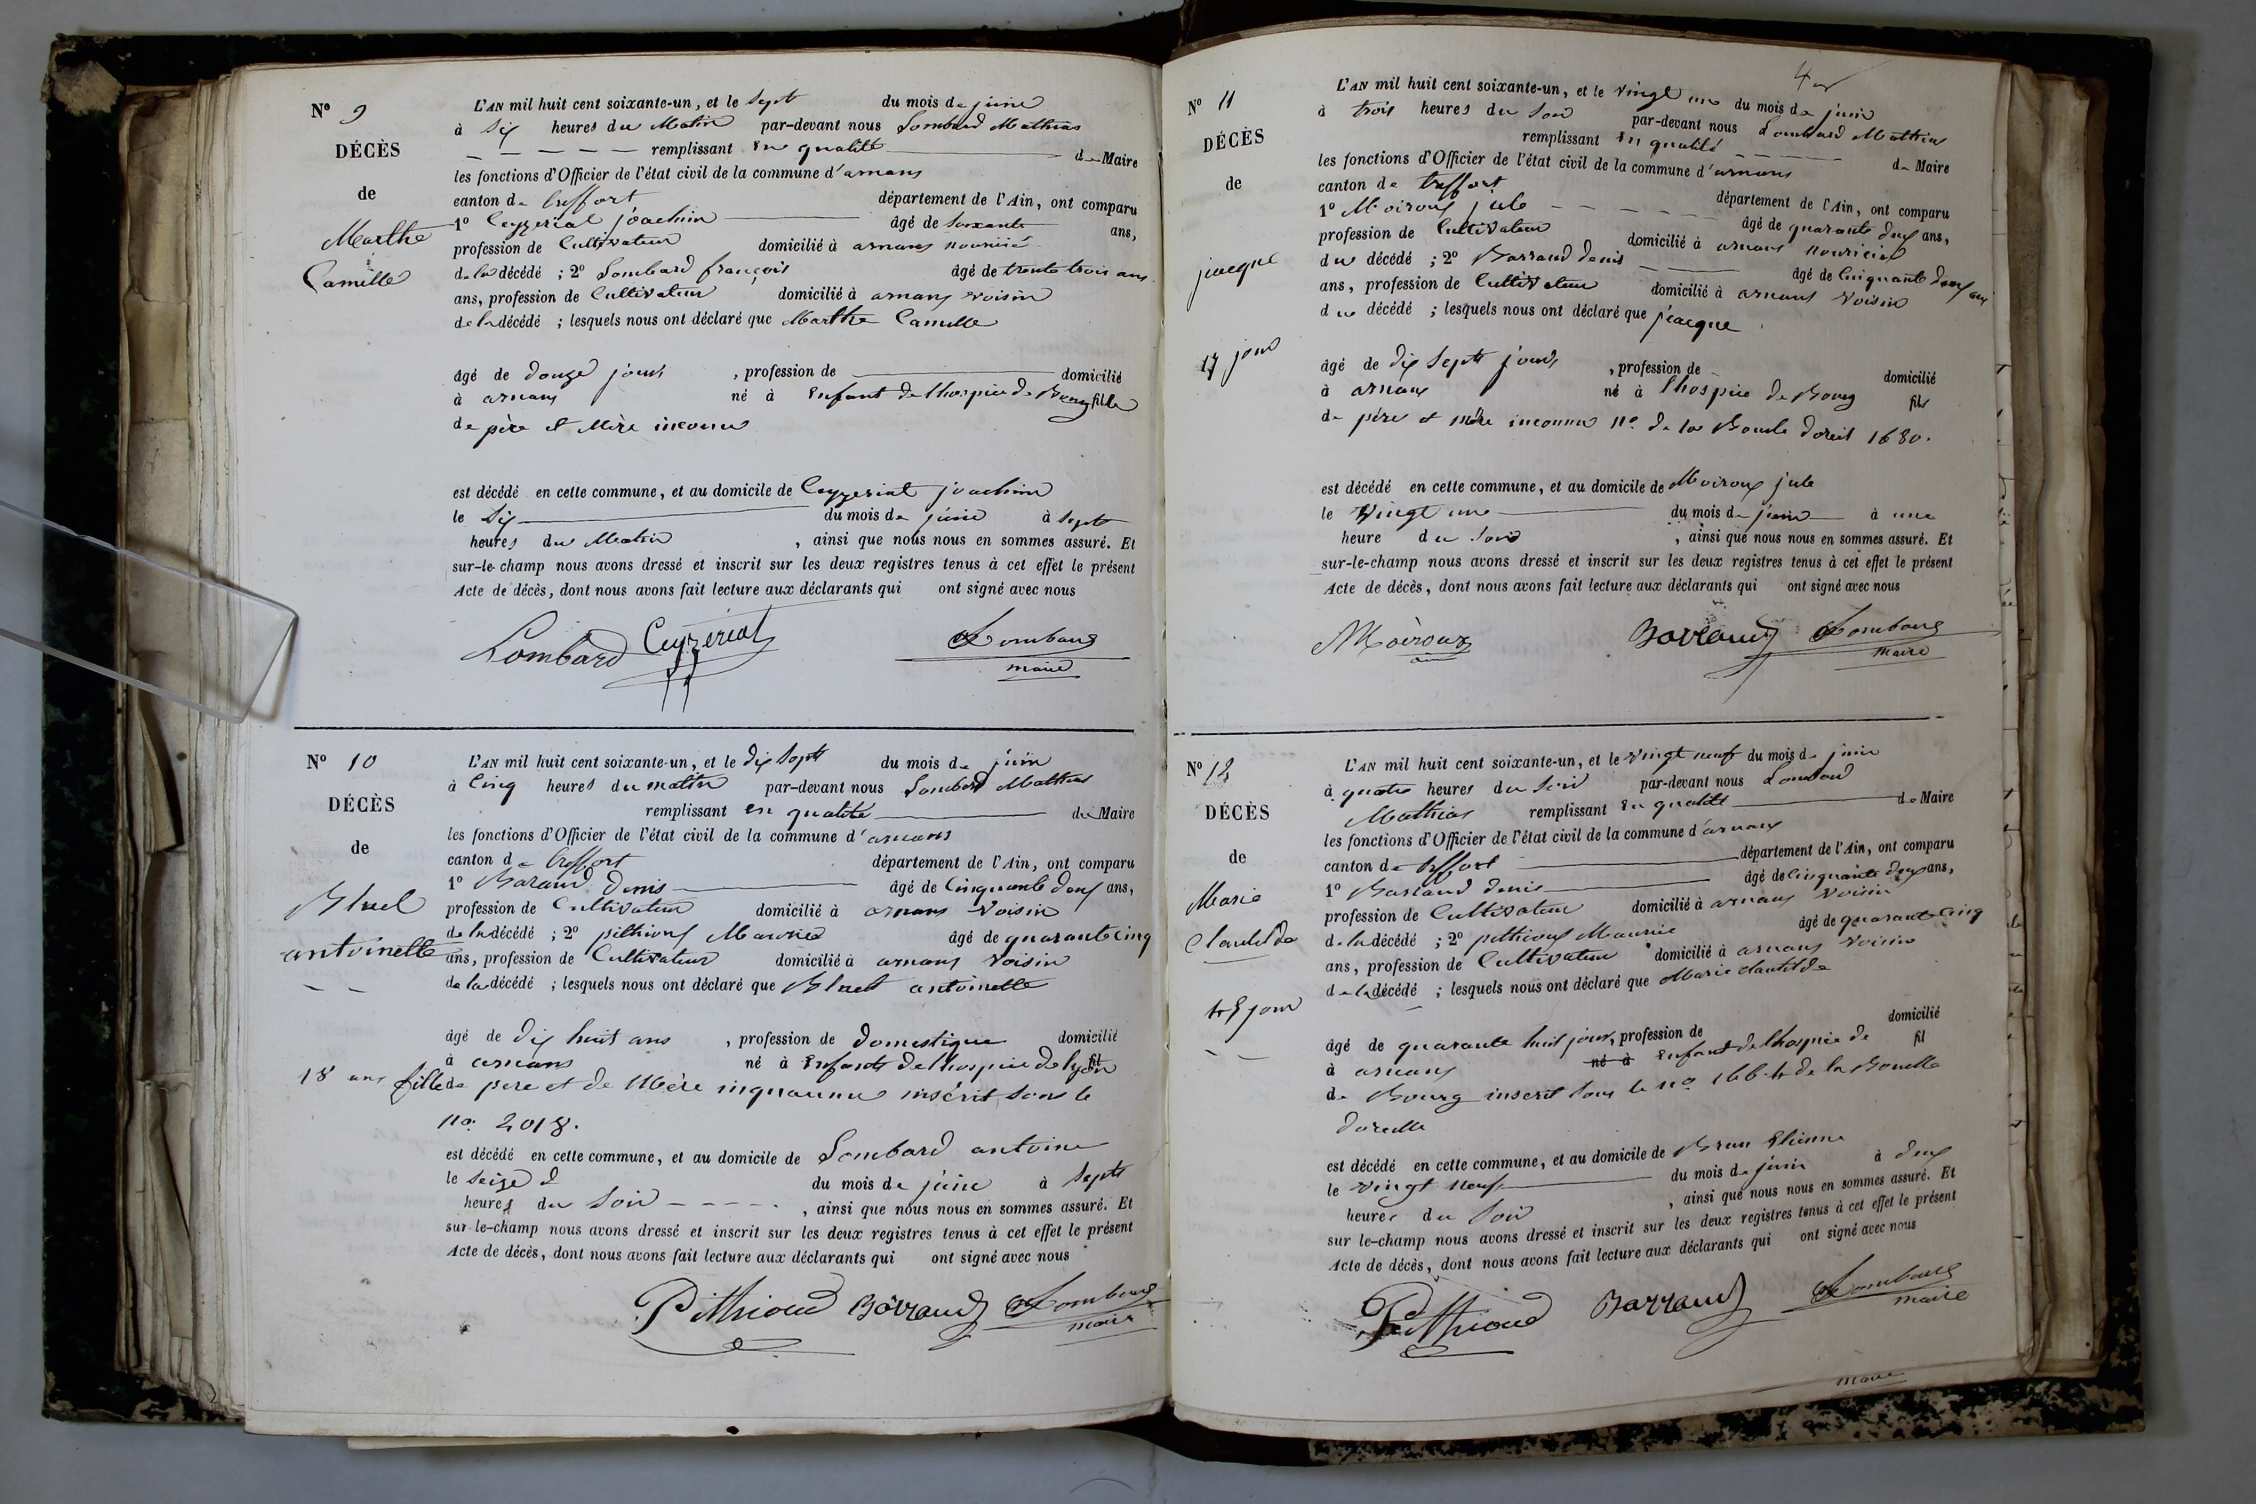 N° 9
DÉCÈS
de
Marthe
Camille
L'AN mil huit cent soixante-un, et le sept du mois de juin
à six heures du Matin par-devant nous Lombard Mathias
remplissant en qualité de Maire
les fonctions d'Officier de l'état civil de la commune d'arnans
canton de treffort département de l'Ain, ont comparu
1° Ceyzeriat joachin âgé de soixante ans,
profession de Cultivateur domicilié à arnans nouricié
de la décédé ; 2° Lombard françois âgé de trente trois ans
ans, profession de Cultivateur domicilié à arnans voisin
de la décédé ; lesquels nous ont déclaré que Marthe Camille
âgé de douze jours , profession de domicilié
à arnans né à Enfant de lhospice de Bourg fille
de père et Mère inconnu
est décédé en cette commune, et au domicile de Ceyzeriat joachin
le six du mois de juin à sept
heures du Matin , ainsi que nous nous en sommes assuré. Et
sur-le-champ nous avons dressé et inscrit sur les deux registres tenus à cet effet le présent
Acte de décès, dont nous avons fait lecture aux déclarants qui ont signé avec nous
Lombard Ceyzériat Lombard
maire
N° 10
DÉCÈS
de
Bluet
antoinette
18 ans
L'AN mil huit cent soixante-un, et le dix sept du mois de juin
à Cinq heures du matin par-devant nous Lombard Mathias
remplissant en qualité de Maire
les fonctions d'Officier de l'état civil de la commune d'arnans
canton de treffort département de l'Ain, ont comparu
1° Baraud denis âgé de Cinquante deux ans,
profession de Cultivateur domicilié à arnans voisin
de la décédé ; 2° pithioux Maurice âgé de quarante cinq
ans, profession de Cultivateur domicilié à arnans voisin
de la décédé ; lesquels nous ont déclaré que Bluet antoinette
âgé de dix huit ans , profession de domestique domicilié
à arnans né à Enfants de lhospice de lyon fil
fille de pere et de Mère inquonnu inscrit sous le
no. 2018.
est décédé en cette commune, et au domicile de Lombard antoine
le seize du mois de juin à sept
heures du soir , ainsi que nous nous en sommes assuré. Et
sur-le-champ nous avons dressé et inscrit sur les deux registres tenus à cet effet le présent
Acte de décès, dont nous avons fait lecture aux déclarants qui ont signé avec nous
Pithioud Barraud Lombard
maire
N° 11
DÉCÈS
de
jiacque
17 jours
L'AN mil huit cent soixante-un, et le vingt une du mois de juin
à trois heures du soir par-devant nous Lombard Mathias
remplissant en qualité de Maire
les fonctions d'Officier de l'état civil de la commune d'arnans
canton de treffort département de l'Ain, ont comparu
1° Moiroux jule âgé de quarante deux ans,
profession de Cultivateur domicilié à arnans nouricié
du décédé ; 2° Barraud denis âgé de Cinquante deux ans
ans, profession de Cultivateur domicilié à arnans voisin
du décédé ; lesquels nous ont déclaré que jiacque
âgé de dix sept jours , profession de domicilié
à arnans né à lhospice de Bourg fils
de père et mère inconnu n°. de la Boucle doreil 1680.
est décédé en cette commune, et au domicile de Moiroux jule
le vingt une du mois de juin à une
heure du soir , ainsi que nous nous en sommes assuré. Et
sur-le-champ nous avons dressé et inscrit sur les deux registres tenus à cet effet le présent
Acte de décès, dont nous avons fait lecture aux déclarants qui ont signé avec nous
Moiroux Barraud Lombard
maire
N° 12
DÉCÈS
de
Marie
Clautilde
48 jour
L'AN mil huit cent soixante-un, et le vingt neuf du mois de juin
à quatre heures du soir par-devant nous Lombard
Mathias remplissant en qualité de Maire
les fonctions d'Officier de l'état civil de la commune d'arnans
canton de treffort département de l'Ain, ont comparu
1° Barraud denis âgé de Cinquante deux ans,
profession de Cultivateur domicilié à arnans voisin
de la décédé ; 2° pithioux Maurice âgé de quarante cinq
ans, profession de Cultivateur domicilié à arnans voisin
de la décédé ; lesquels nous ont déclaré que Marie clautilde
âgé de quarante huit jours, profession de domicilié
à arnans né à enfant de lhospice de fil
de Bourg inscrit sous le no 1664 de la Boucle
doreille
est décédé en cette commune, et au domicile de Brun Etienne
le vingt neuf du mois de juin à deux
heures du soir , ainsi que nous nous en sommes assuré. Et
sur le-champ nous avons dressé et inscrit sur les deux registres tenus à cet effet le présent
Acte de décès, dont nous avons fait lecture aux déclarants qui ont signé avec nous
Pithioud Barraud Lombard
maire
maire